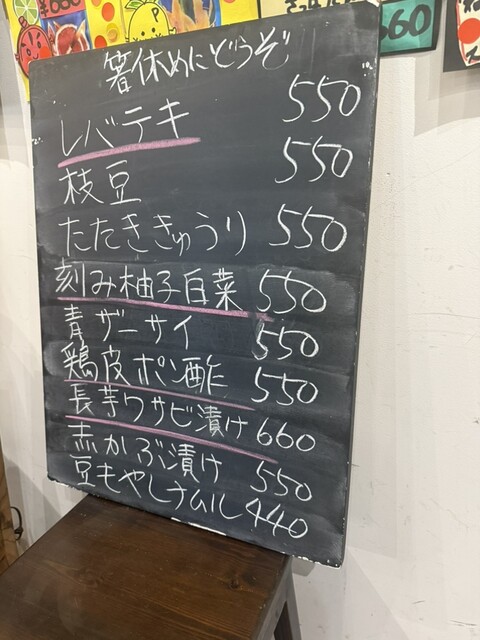 ¥660
660
箸休めにどうぞ
レバテキ 550
枝豆 550
たたききゅうり 550
刻み柚子白菜 550
青ザーサイ 550
鶏皮ポン酢 550
長芋ワサビ漬け 660
赤かぶ漬け 550
豆もやしナムル 440